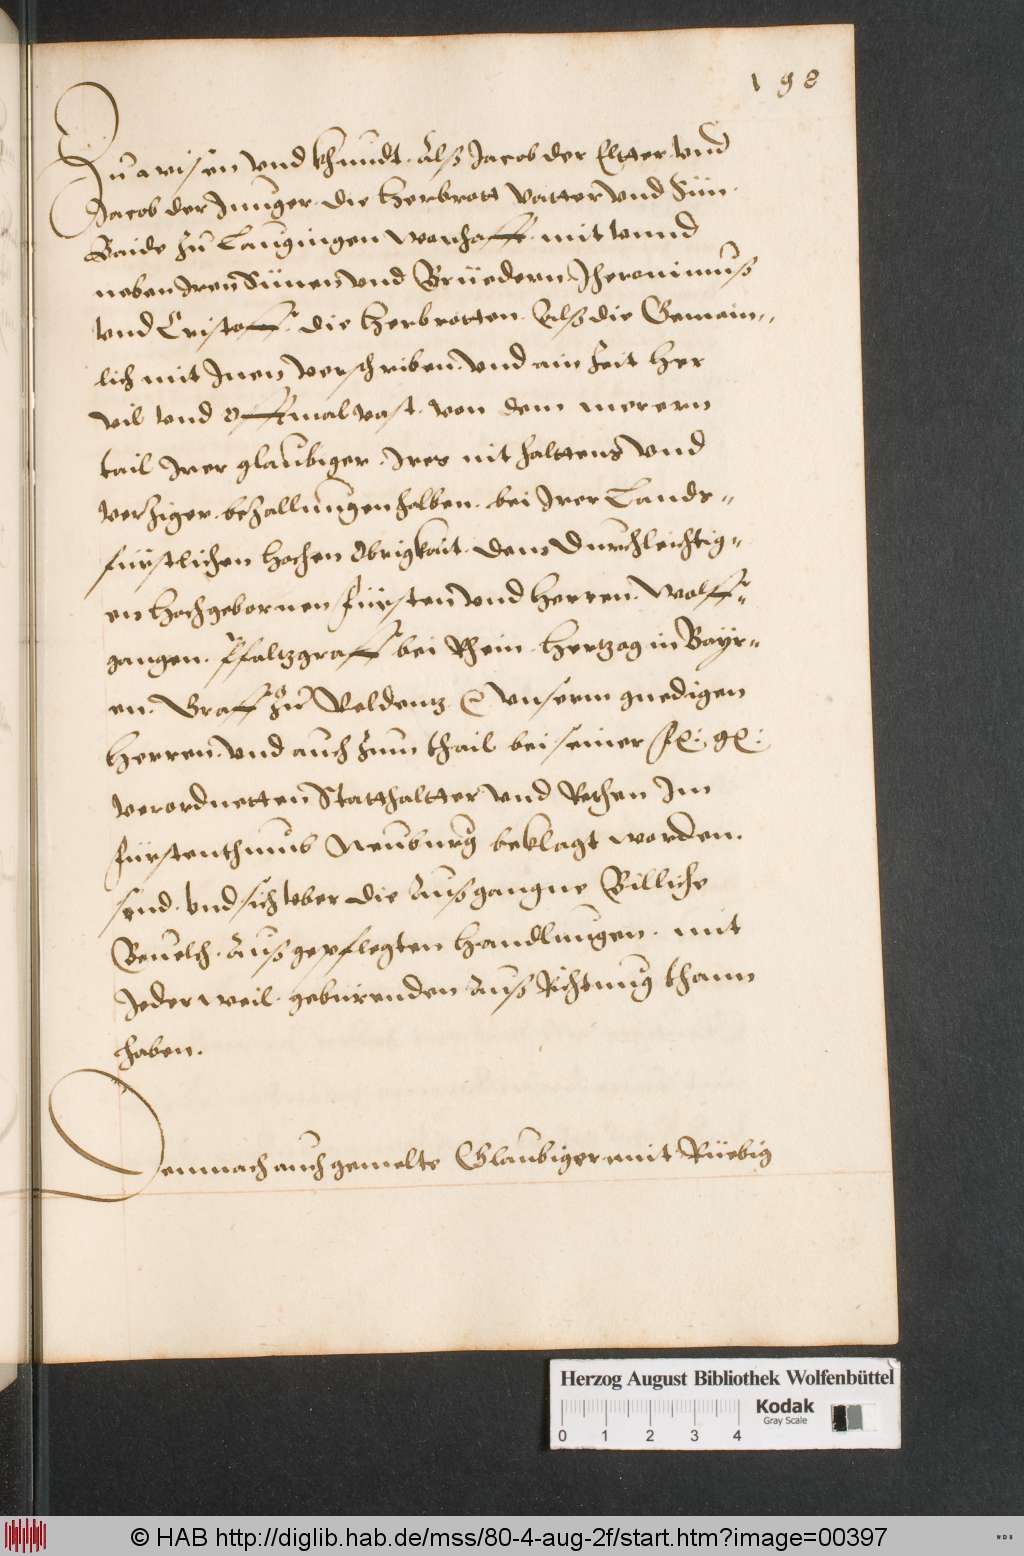 198
Zu wisen vnd khundt. Alß Jacob der Eltter vnd
Jacob der Junger. die Herbrott Vatter vnd Sün.
Baide zu Laugingen wonhafft. mit vnnd
neben Iren Sünen vnd Brüedern, Jheronimuß
vnd Cristoff. die Herbrotten. Alß die Gemain-
lich mit Inen verschriben. vnd ain Zeit her
vil vnd offtmal vast. von dem merern
tail Irer glaubiger. Ires nit halttens vnd
verziger. bezallungen halben. bei Irer Lands-
fürstlichen hochen Obrigkait. dem Durchleichtig-
en Hochgebornen Fürsten vnd Herren. Wolff-
gangen. Pfaltzgraff bei Rhein. Hertzog in Bayr-
en. Graff zu Veldentz vnserm gnedigen
Herren. vnd auch zum thail bei seiner f: g:
verordnetten Statthaltter vnd Rethen Im
Fürstenthumb Neuburg beklagt worden.
send. vnd sich vber die Außgangne Billiche
Beuelch. Auß gepflegten Handlungen. mit
Jeder weil. geburenden Auß Richtung thann
haben.
Demnach auch gemelte Glaubiger mit Rüebig
Herzog August Bibliothek Wolfenbüttel
Kodak
Gray Scale
0 1 2 3 4
© HAB http://diglib.hab.de/mss/80-4-aug-2f/start.htm?image=00397